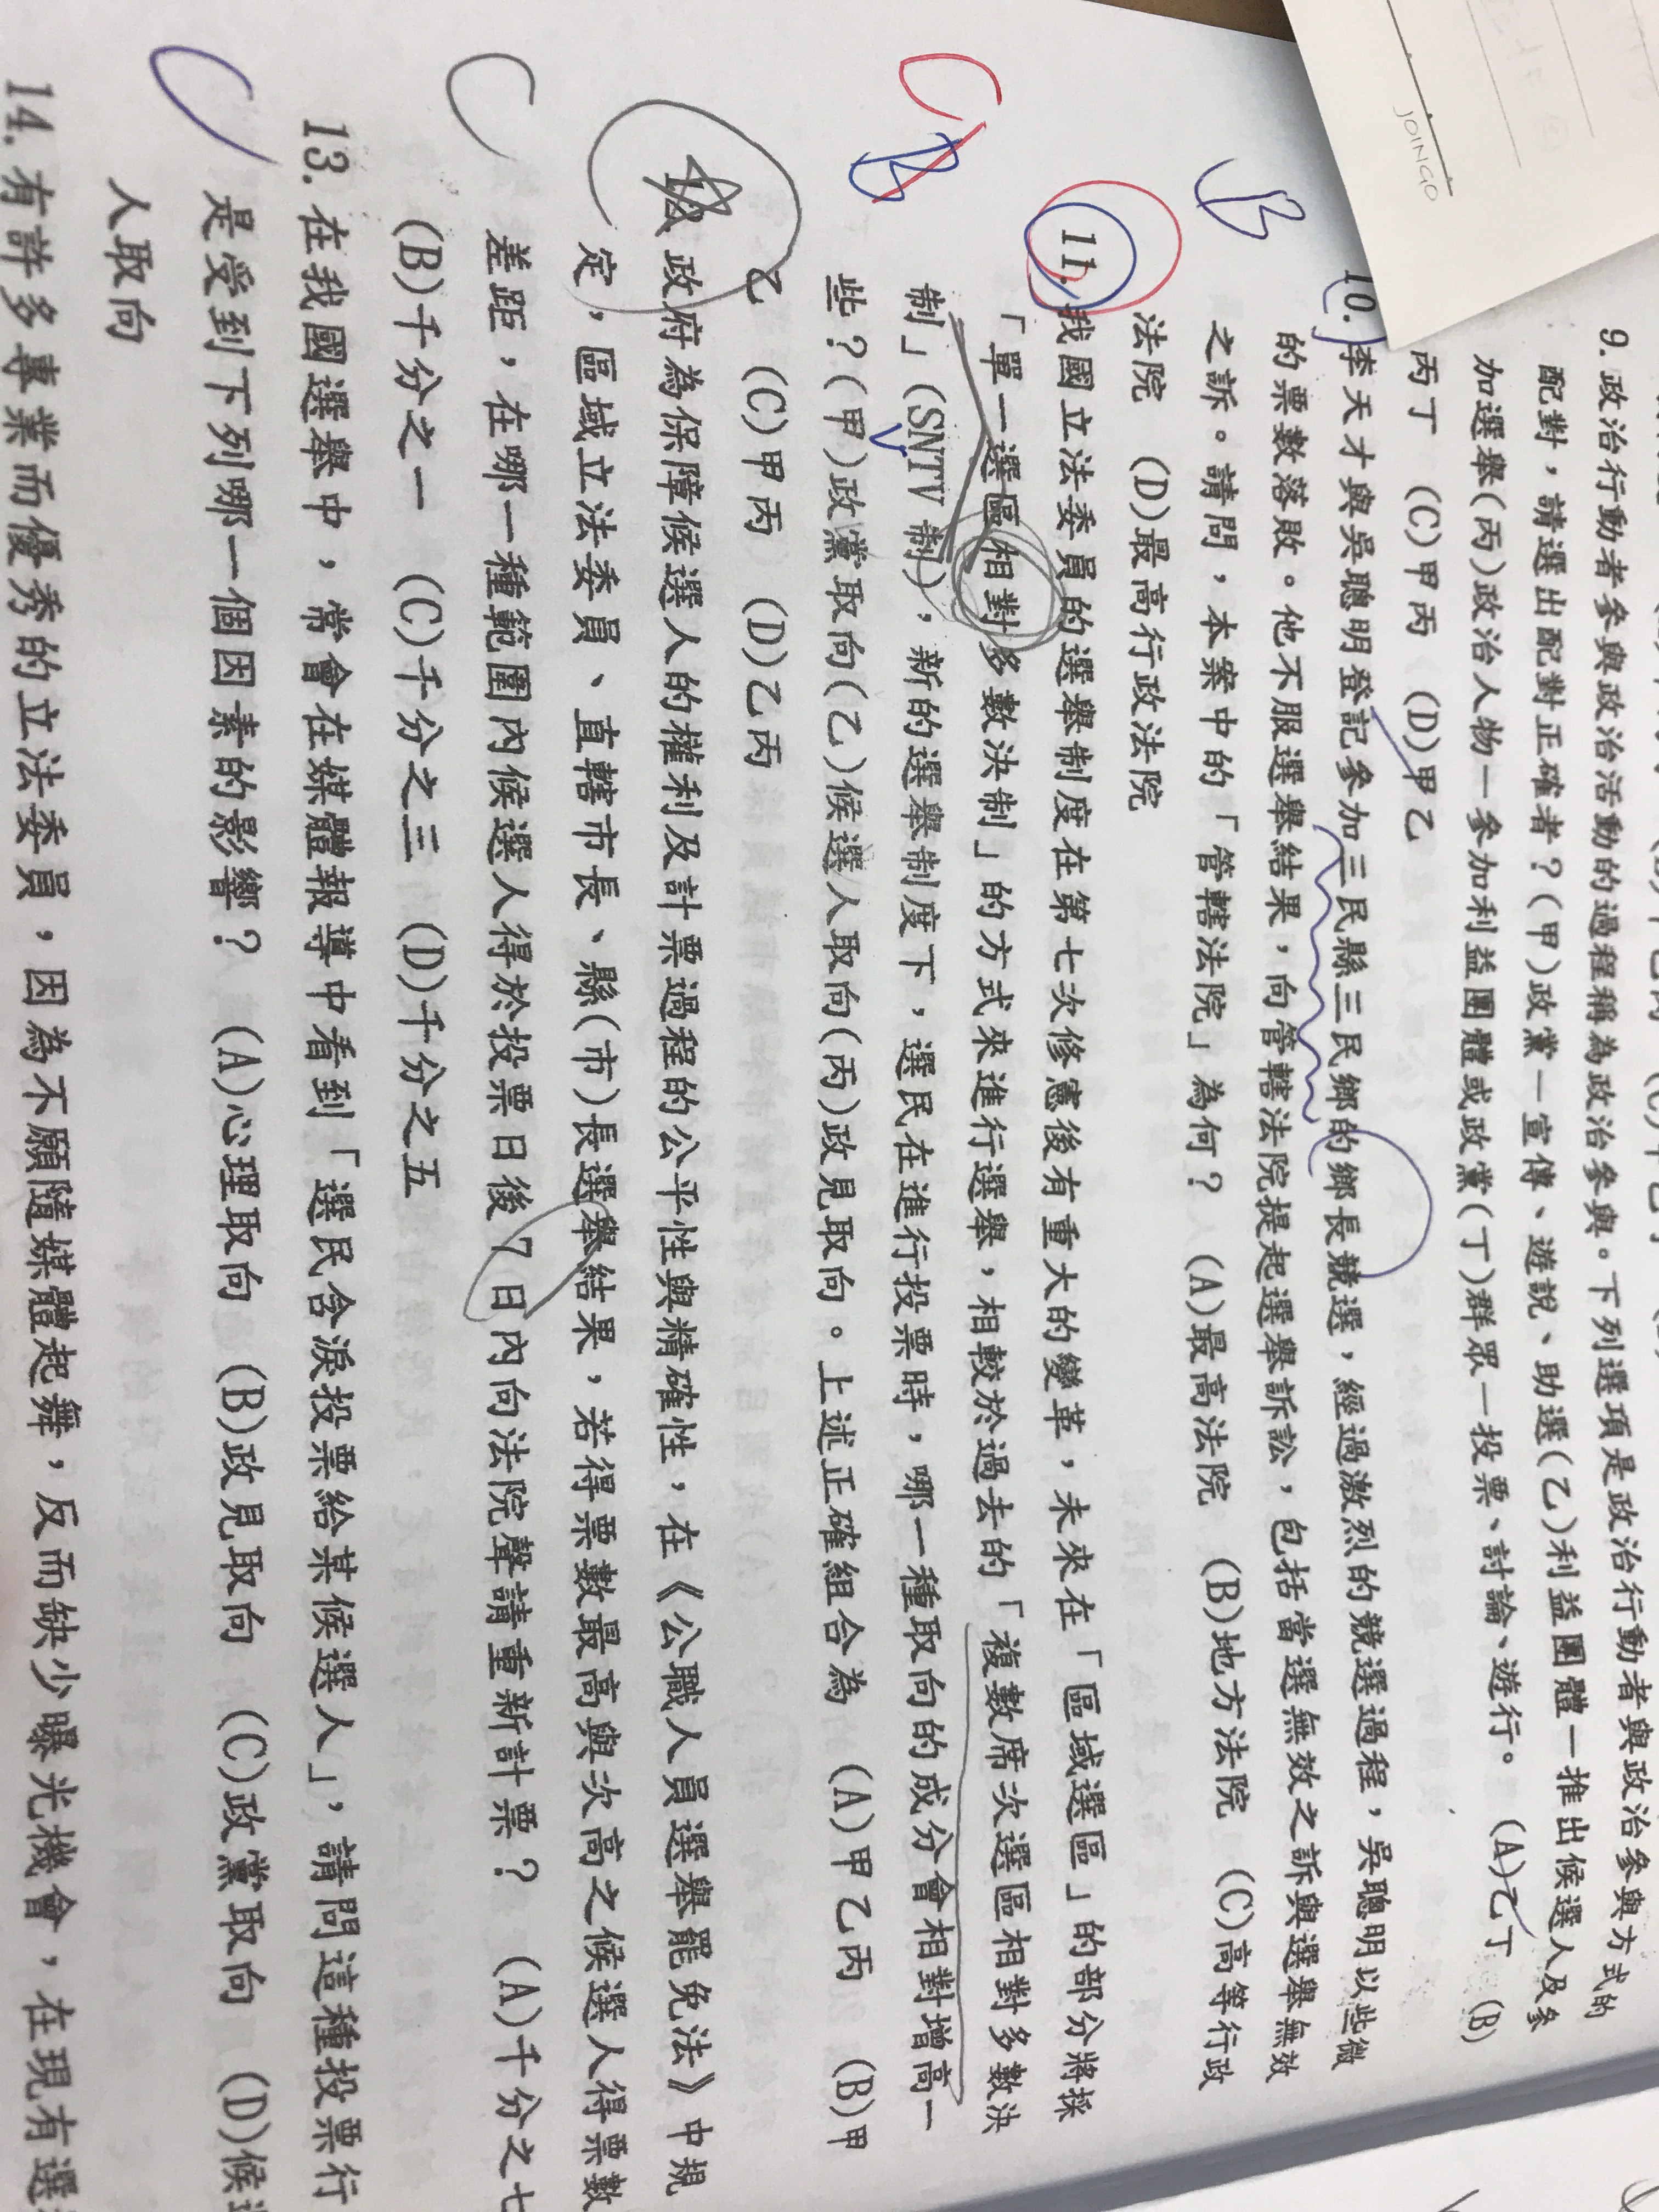 JOINGO
9.政治行動者參與政治活動的過程稱為政治參與。下列選項是政治行動者與政治參與方式的
配對，請選出配對正確者？(甲)政黨—宣傳、遊說、助選(乙)利益團體—推出候選人及參
加選舉(丙)政治人物—參加利益團體或政黨(丁)群眾—投票、討論、遊行。 (A)乙丁 (B)
丙丁 (C)甲丙 (D)甲乙
B
10.李天才與吳聰明登記參加三民縣三民鄉的鄉長競選，經過激烈的競選過程，吳聰明以些微
的票數落敗。他不服選舉結果，向管轄法院提起選舉訴訟，包括當選無效之訴與選舉無效
之訴。請問，本案中的「管轄法院」為何？ (A)最高法院 (B)地方法院 (C)高等行政
法院 (D)最高行政法院
C B
11.我國立法委員的選舉制度在第七次修憲後有重大的變革，未來在「區域選區」的部分將採
「單一選區相對多數決制」的方式來進行選舉，相較於過去的「複數席次選區相對多數決
制」(SNTV 制)，新的選舉制度下，選民在進行投票時，哪一種取向的成分會相對增高一
些？(甲)政黨取向(乙)候選人取向(丙)政見取向。上述正確組合為 (A)甲乙丙 (B)甲
乙 (C)甲丙 (D)乙丙
政府為保障候選人的權利及計票過程的公平性與精確性，在《公職人員選舉罷免法》中規
定，區域立法委員、直轄市長、縣(市)長選舉結果，若得票數最高與次高之候選人得票數
差距，在哪一種範圍內候選人得於投票日後 7 日內向法院聲請重新計票？ (A)千分之七
(B)千分之一 (C)千分之三 (D)千分之五
C
13.在我國選舉中，常會在媒體報導中看到「選民含淚投票給某候選人」，請問這種投票行
是受到下列哪一個因素的影響？ (A)心理取向 (B)政見取向 (C)政黨取向 (D)候
人取向
C
14.有許多專業而優秀的立法委員，因為不願隨媒體起舞，反而缺少曝光機會，在現有選